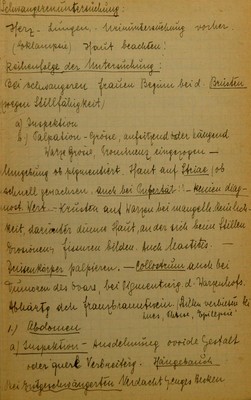 Schwangerenuntersuchung:
Herz- Lungen- Urinuntersuchung vorher.
(Eklampsie) Haut beachten:
Reihenfolge der Untersuchung:
Bei schwangeren Frauen Beginn bei d Brüsten
(wegen Stillfähigkeit)
a) Inspektion
b) Palpation - Größe, aufsitzend oder hängend
Warze Größe, Prominenz eingezogen -
Umgebung ob pigmentiert. Haut auf Striae (ob
schnell gewachsen. auch bei Pubertät! - keinen diag-
nost. Wert - Krusten auf Warzen bei mangelh. Reinlich-
keit, darunter dünne Haut, an der sich beim Stillen
Erosionen, Fissuren bilden. Auch Mastitis. -
Drüsenkörper palpieren. - Colostrum auch bei
Tumoren des Ovars, bei Pigmentierg d. Warzenhofs.
1.) Abdomen
a) Inspektion - Ausdehnung ovoide Gestalt
oder quere Verbreiterg. Hängebauch
bei Erstgeschwängerten Verdacht enges Becken